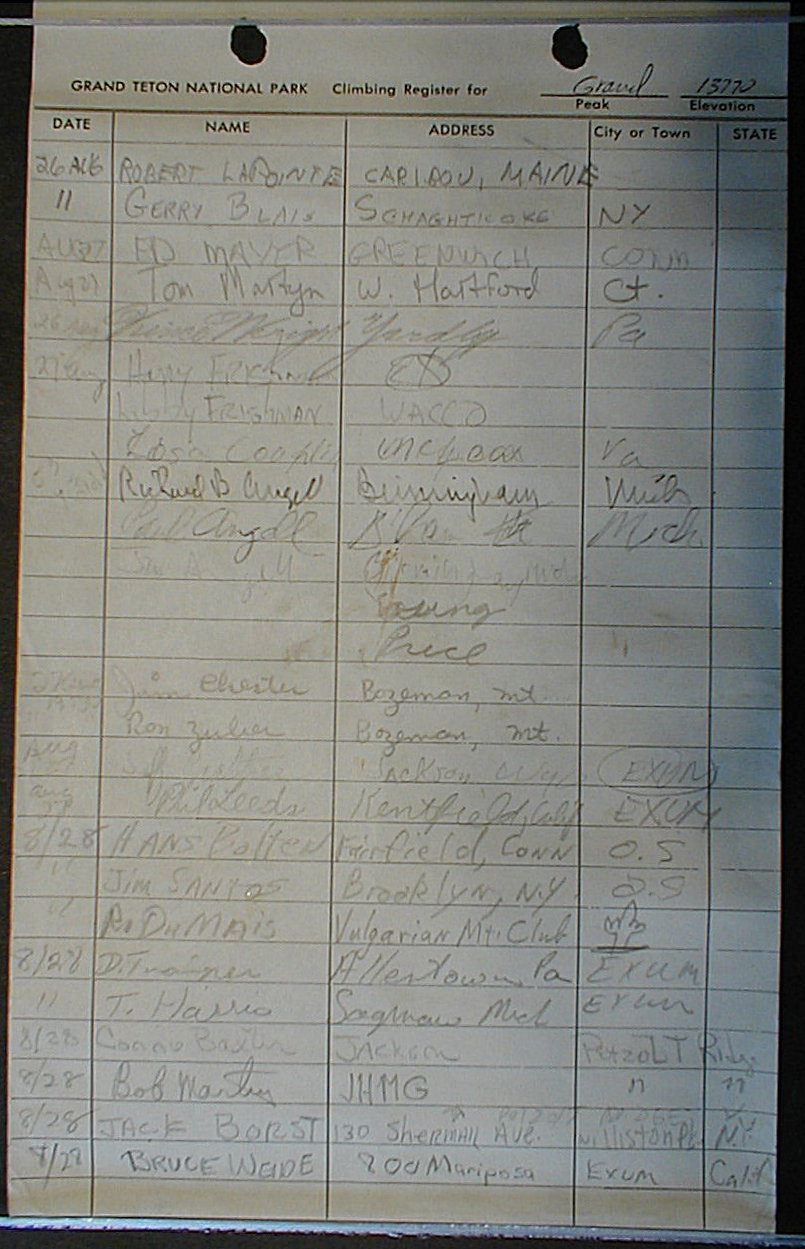 GRAND TETON NATIONAL PARK Climbing Register for Grand 13770
Peak Elevation
DATE NAME ADDRESS City or Town STATE
26 AUG ROBERT LAPOINTE CARIBOU, MAINE
11 GERRY BLAIS SCHAGHTICOKE NY
AUG 27 ED MAYER GREENWICH CONN
Aug 27 Tom Martyn W. Hartford Ct.
26 Yardley Pa
27 Aug Harry FRISHMAN
Libby FRISHMAN WACCO
McLean Va
Richard B Angell Birmingham Mich
Angell Mich.
Young
Price
Jim Chester Bozeman, Mt.
Ron Bozeman, Mt.
Aug Jackson EXUM
Aug Phil Leeds Kentfield, Calif EXUM
8/28 HANS Bolten Fairfield, CONN O.S
" Jim SANTOS Brooklyn, N.Y. O.S
" DUMAIS Vulgarian Mt. Club
8/28 D. Trainer Allentown Pa EXUM
11 T. Harris Saginaw Mich EXUM
8/28 Connie JACKSON PETZOLT Ridge
8/28 Bob JHMG " "
8/28 JACK BORST 130 SHERMAN AVE. WILLISTON PK N.Y.
8/28 BRUCE WEIDE 800 Mariposa EXUM Calif